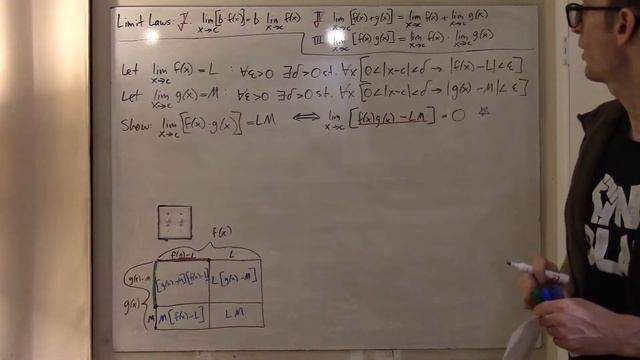 Limit Laws: I. lim x→c [b·f(x)] = b·lim x→c f(x) II lim x→c [f(x)+g(x)] = lim x→c f(x) + lim x→c g(x)
III lim x→c [f(x)·g(x)] = lim x→c f(x) · lim x→c g(x)
Let lim x→c f(x) = L : ∀ε>0 ∃δ>0 st. ∀x [0<|x-c|<δ → |f(x)-L|<ε]
Let lim x→c g(x) = M : ∀ε>0 ∃δ>0 st. ∀x [0<|x-c|<δ → |g(x)-M|<ε]
Show: lim x→c [f(x)·g(x)] = LM ⟺ lim x→c [f(x)g(x) - LM] = 0
f(x)
f(x)-L L
g(x)-M [g(x)-M][f(x)-L] L[g(x)-M]
g(x)
M M[f(x)-L] LM